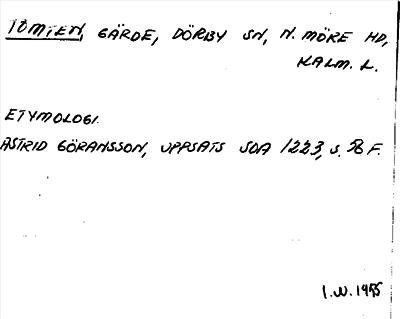 TOMTEN, GÄRDE, DÖRBY SN, N. MÖRE HD,
KALM. L.
ETYMOLOGI.
ASTRID GÖRANSSON, UPPSATS SOA 1223, s. F.
I.W. 1955